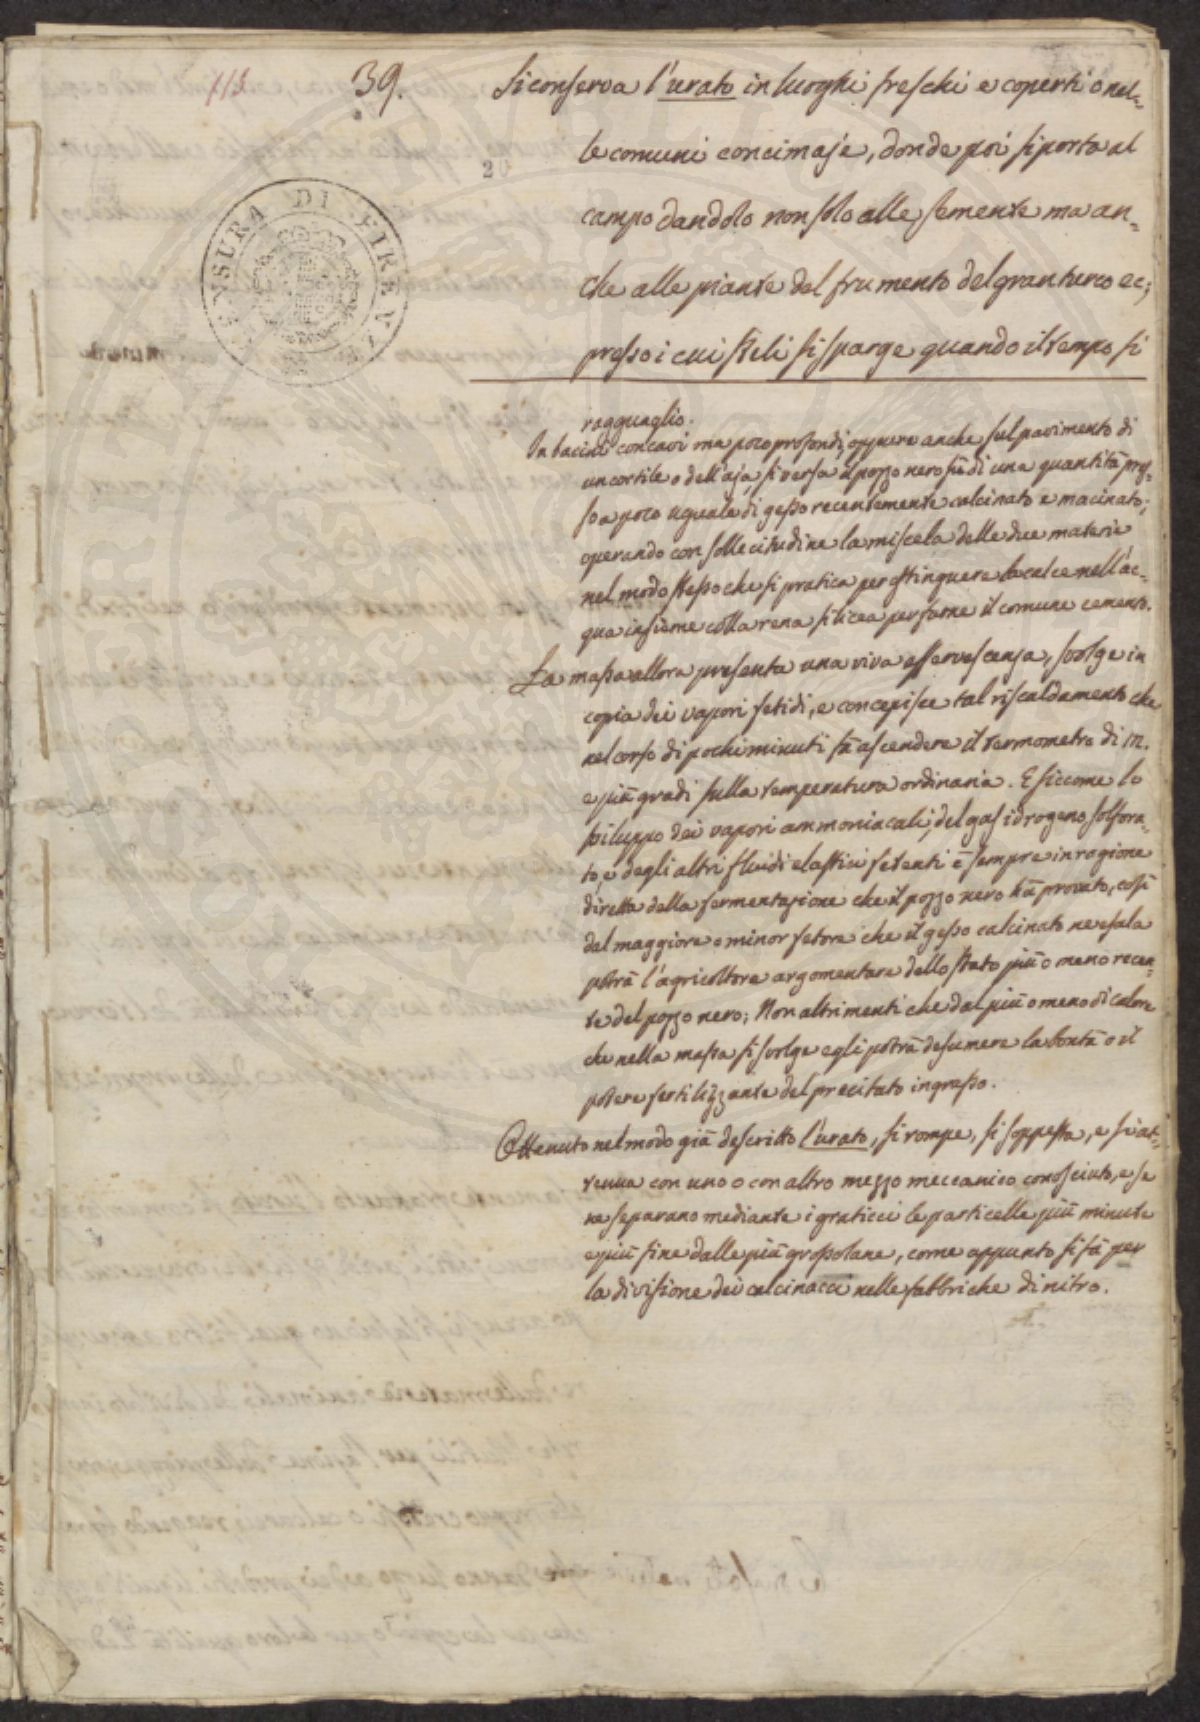 113.
39.
20
CENSURA DI FIRENZE
Si conserva l'urato in luoghi freschi e coperti o nel-
le comuni concimaje, donde poi si porta al
campo dandolo non solo alle semente ma an-
che alle piante del frumento del granturco ec;
presso i cui steli si sparge quando il tempo si
ragguaglio.
In bacini concavi ma poco profondi, oppure anche sul pavimento di
un cortile o dell'aja si versa il pozzo nero sù di una quantità pres-
so a poco uguale di gesso recentemente calcinato e macinato;
operando con sollecitudine la miscela delle due materie
nel modo stesso che si pratica per estinguere la calce nell'ac-
qua insieme colla rena silicea per farne il comune cemento.
La massa allora presenta una viva effervescenza, svolge in
copia dei vapori fetidi, e concepisce tal riscaldamento che
nel corso di pochi minuti fà ascendere il termometro di m.
e più gradi sulla temperatura ordinaria. E siccome lo
sviluppo dei vapori ammoniacali, del gas idrogeno solfora-
to, e degli altri fluidi elastici fetenti è sempre in ragione
diretta della fermentazione che il pozzo nero hà provato, così
dal maggiore o minor fetore che il gesso calcinato ne esala
potrà l'agricoltore argomentare dello stato più o meno recen-
te del pozzo nero; Non altrimenti che dal più o meno di calore
che nella massa si svolge egli potrà desumere la bontà o il
potere fertilizzante del precitato ingrasso.
Ottenuto nel modo già descritto l'urato, si rompe, si soppesta, e si at-
tenua con uno o con altro mezzo meccanico conosciuto, e se
ne separano mediante i graticci le particelle più minute
e più fine dalle più grossolane, come appunto si fà per
la divisione dei calcinacci nelle fabbriche di nitro.